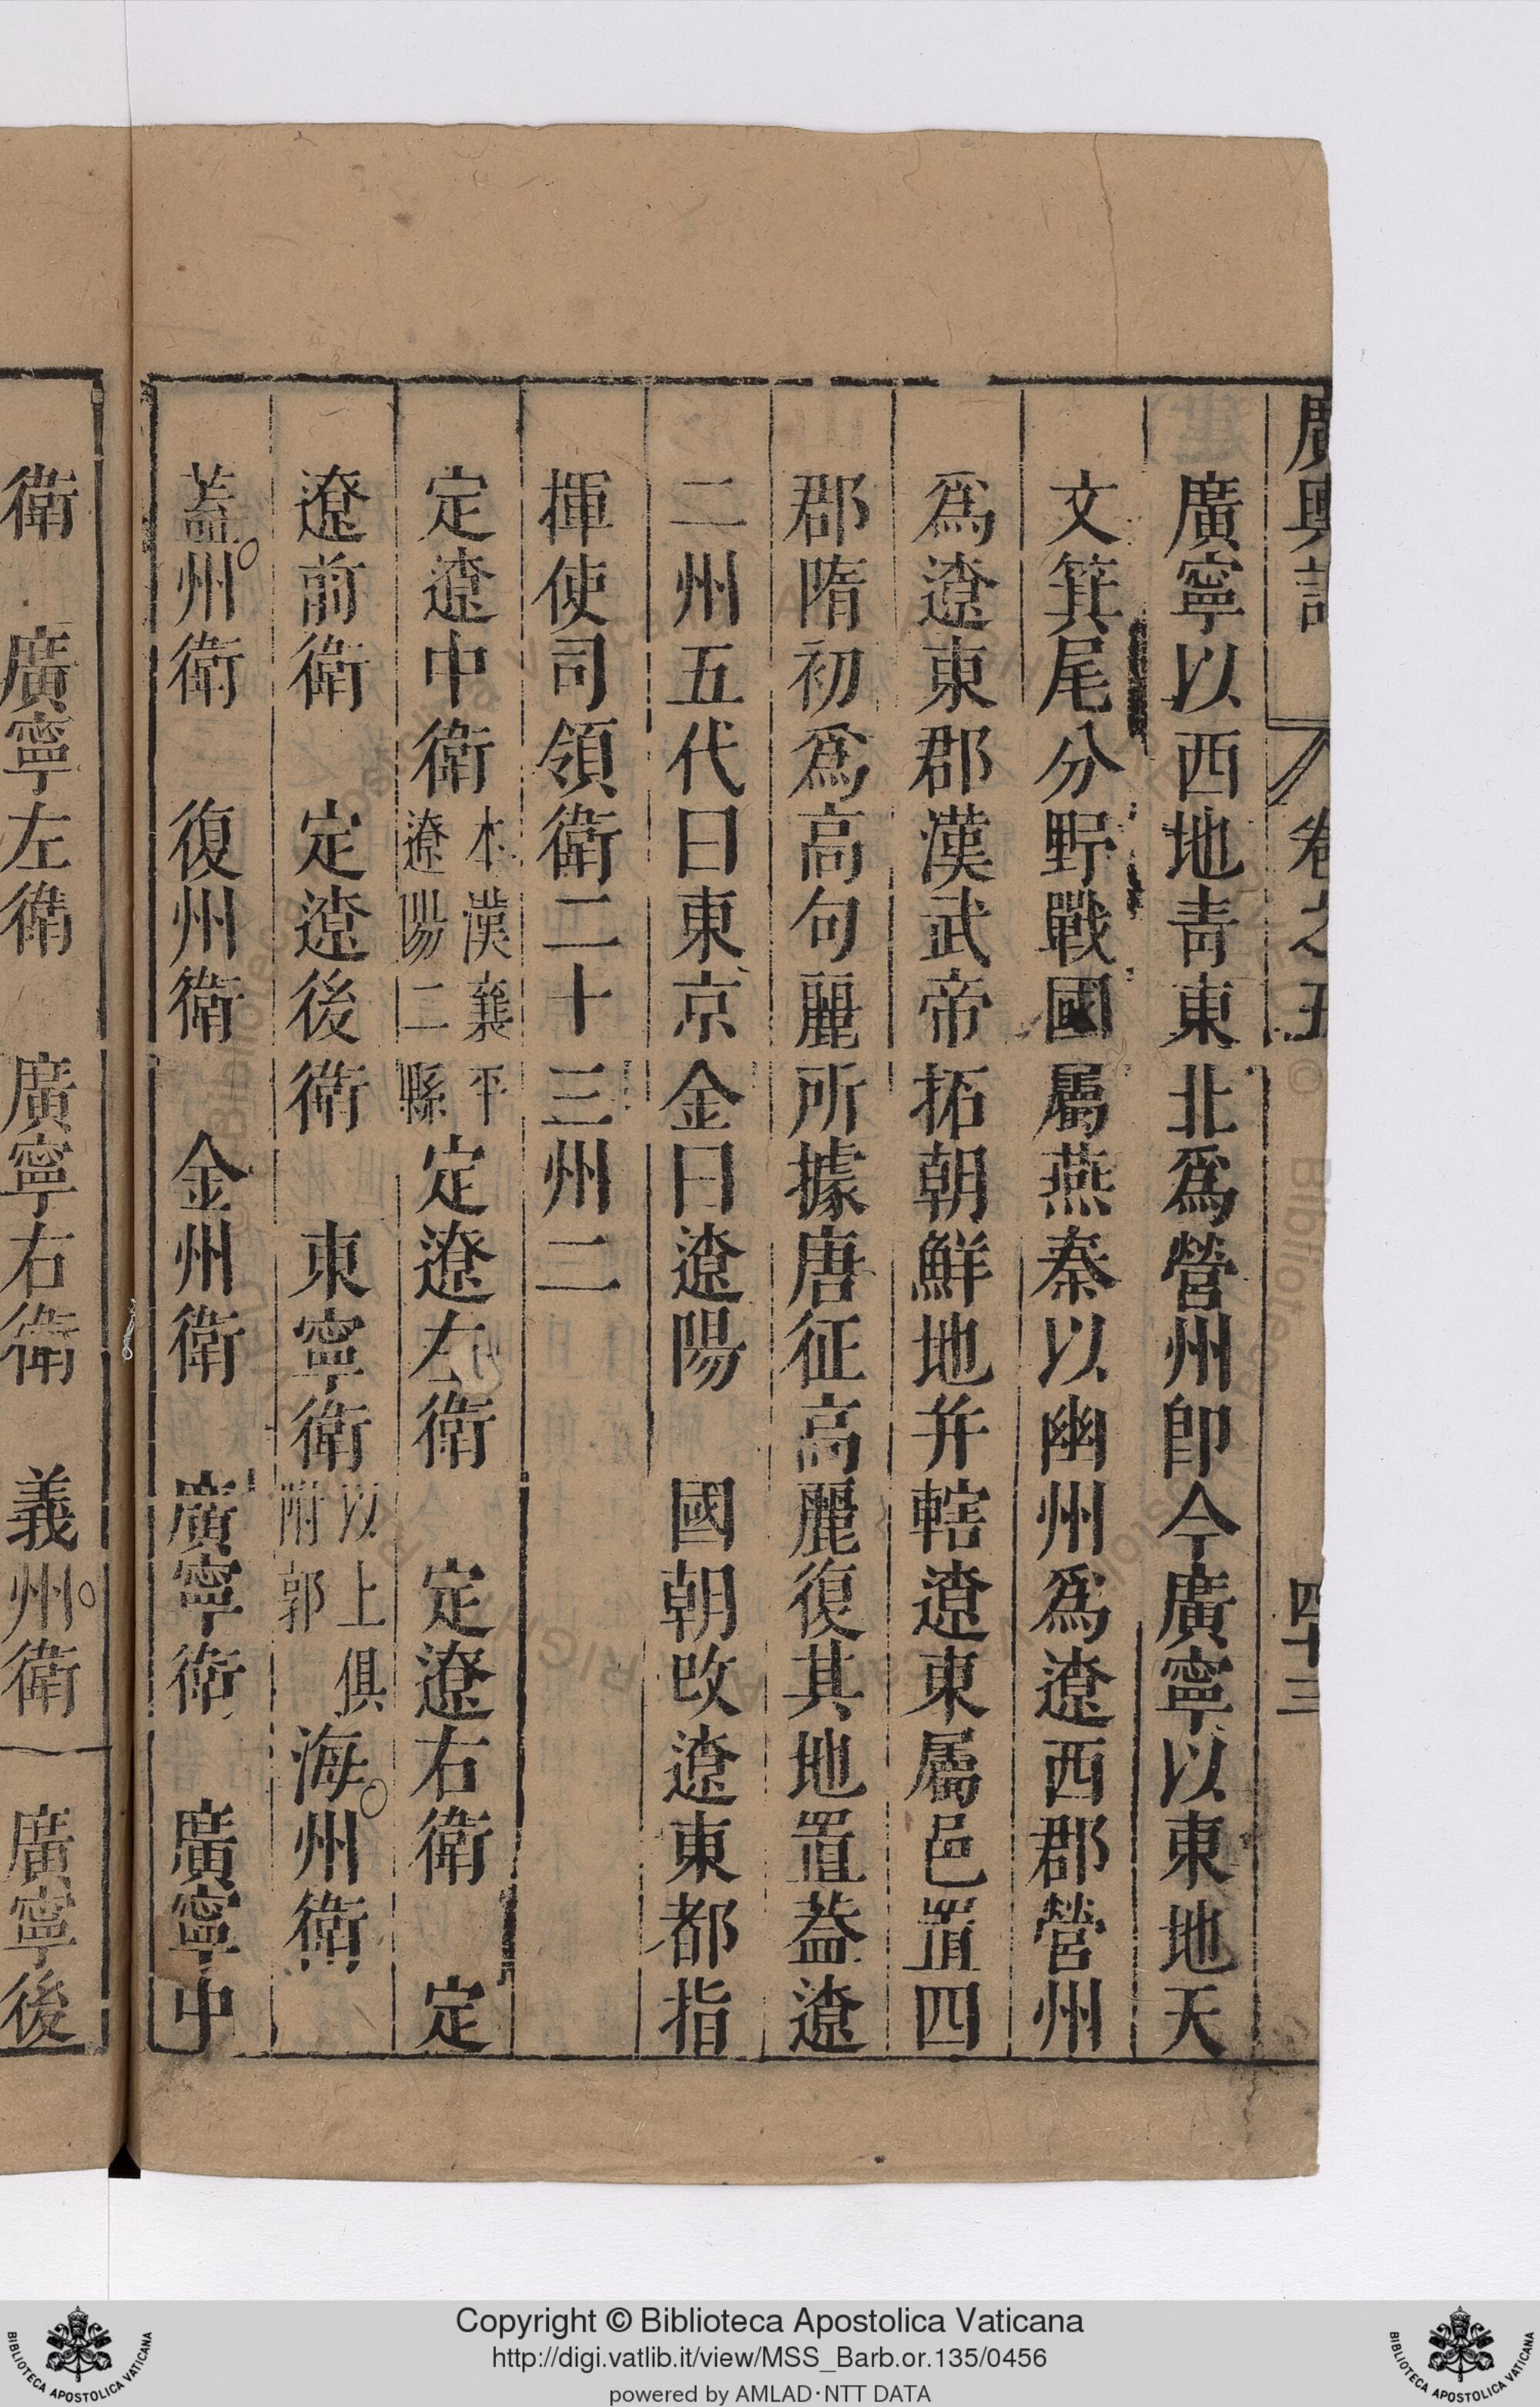 廣輿記 卷之五 四十三
廣寧以西地青東北爲營州卽今廣寧以東地天
文箕尾分野戰國屬燕秦以幽州爲遼西郡營州
爲遼東郡漢武帝拓朝鮮地并轄遼東屬邑置四
郡隋初爲高句麗所據唐征高麗復其地置葢遼
二州五代曰東京金曰遼陽 國朝改遼東都指
揮使司領衛二十三州二
定遼中衛 本漢襄平遼陽二縣 定遼左衛 定遼右衛 定
遼前衛 定遼後衛 東寧衛 以上俱附郭 海州衛
蓋州衛 復州衛 金州衛 廣寧衛 廣寧中
衛 廣寧左衛 廣寧右衛 義州衛 廣寧後
Copyright © Biblioteca Apostolica Vaticana
http://digi.vatlib.it/view/MSS_Barb.or.135/0456
powered by AMLAD·NTT DATA
BIBLIOTECA APOSTOLICA VATICANA
BIBLIOTECA APOSTOLICA VATICANA